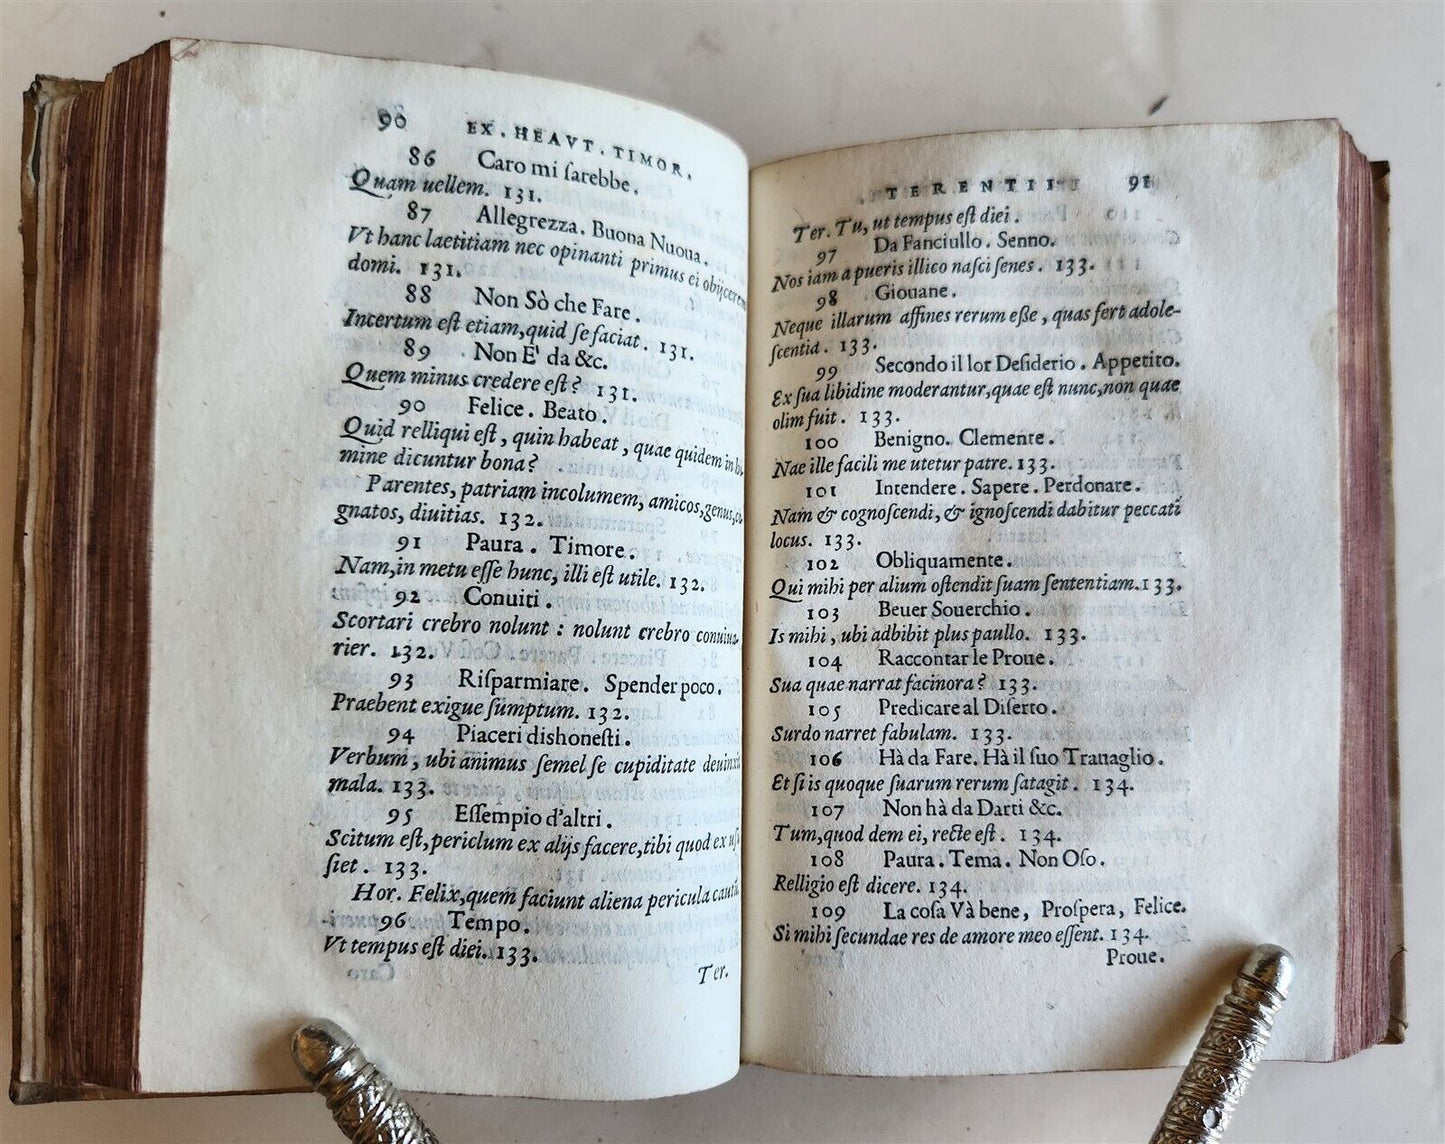 90 EX. HEAVT. TIMOR.
86 Caro mi ſarebbe.
Quam uellem. 131.
87 Allegrezza. Buona Nuoua.
Vt hanc laetitiam nec opinanti primus ei obijcerem
domi. 131.
88 Non Sò che Fare.
Incertum eſt etiam, quid ſe faciat. 131.
89 Non E' da &c.
Quem minus credere eſt? 131.
90 Felice. Beato.
Quid relliqui eſt, quin habeat, quae quidem in
mine dicuntur bona?
Parentes, patriam incolumem, amicos, genus,
gnatos, diuitias. 132.
91 Paura. Timore.
Nam, in metu eſſe hunc, illi eſt utile. 132.
92 Conuiti.
Scortari crebro nolunt: nolunt crebro conuiua-
rier. 132.
93 Riſparmiare. Spender poco.
Praebent exigue ſumptum. 132.
94 Piaceri dishoneſti.
Verbum, ubi animus ſemel ſe cupiditate deuinxit
mala. 133.
95 Eſſempio d'altri.
Scitum eſt, periclum ex alijs facere, tibi quod ex uſu
ſiet. 133.
Hor. Felix, quem faciunt aliena pericula cautū.
96 Tempo.
Vt tempus eſt diei. 133.
Ter.
TERENTII 91
Ter. Tu, ut tempus eſt diei.
97 Da Fanciullo. Senno.
Nos iam a pueris illico naſci ſenes. 133.
98 Giouane.
Neque illarum affines rerum eſſe, quas fert adole-
ſcentia. 133.
99 Secondo il lor Deſiderio. Appetito.
Ex ſua libidine moderantur, quae eſt nunc, non quae
olim fuit. 133.
100 Benigno. Clemente.
Nae ille facili me utetur patre. 133.
101 Intendere. Sapere. Perdonare.
Nam & cognoſcendi, & ignoſcendi dabitur peccati
locus. 133.
102 Obliquamente.
Qui mihi per alium oſtendit ſuam ſententiam. 133.
103 Beuer Souerchio.
Is mihi, ubi adbibit plus paullo. 133.
104 Raccontar le Proue.
Sua quae narrat facinora? 133.
105 Predicare al Diſerto.
Surdo narret fabulam. 133.
106 Hà da Fare. Hà il ſuo Trauaglio.
Et ſi is quoque ſuarum rerum ſatagit. 134.
107 Non hà da Darti &c.
Tum, quod dem ei, recte eſt. 134.
108 Paura. Tema. Non Oſo.
Relligio eſt dicere. 134.
109 La coſa Và bene, Proſpera, Felice.
Si mihi ſecundae res de amore meo eſſent. 134.
Proue.